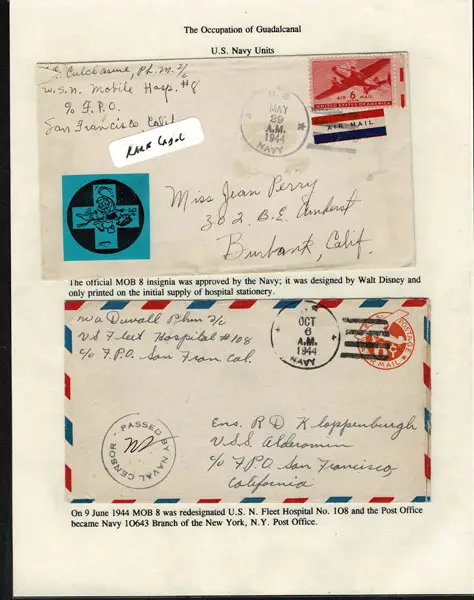 The Occupation of Guadalcanal
U.S. Navy Units
Culclasure, Ph. M. 2/c
U.S.N. Mobile Hosp. #8
℅ F.P.O.
San Francisco, Calif
MAY
29
A.M.
1944
NAVY
AIR 6 MAIL
UNITED STATES OF AMERICA
AIR MAIL
Miss Jean Perry
302 B.E. Amherst
Burbank, Calif.
The official MOB 8 insignia was approved by the Navy; it was designed by Walt Disney and
only printed on the initial supply of hospital stationery.
W a Duvall Phm 2/c
US Fleet Hospital #108
c/o F.P.O. San Fran Cal.
OCT
6
A.M.
1944
NAVY
POSTAGE
AIR MAIL
PASSED BY NAVAL CENSOR
Ens. R D Kloppenburgh
USS Alderamin
c/o F.P.O. San Francisco,
California
On 9 June 1944 MOB 8 was redesignated U.S. N. Fleet Hospital No. 1O8 and the Post Office
became Navy 1O643 Branch of the New York, N.Y. Post Office.